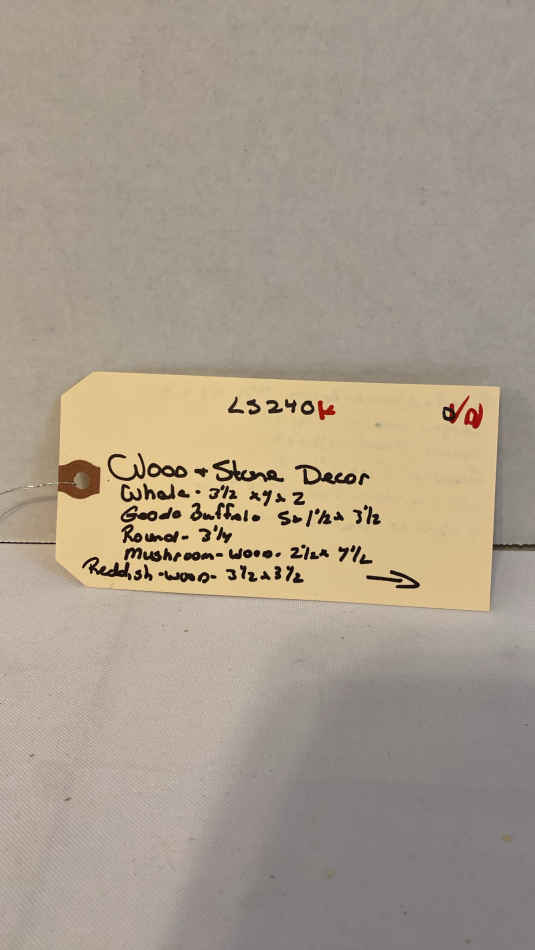 LS240K
Wood + Stone Decor
Whale - 3 1/2 x 4 x 2
Geode Buffalo 5 x 1 1/2 x 3 1/2
Round - 3 1/4
Mushroom - Wood - 2 1/2 x 4 1/2
Reddish - wood - 3 1/2 x 3 1/2 →